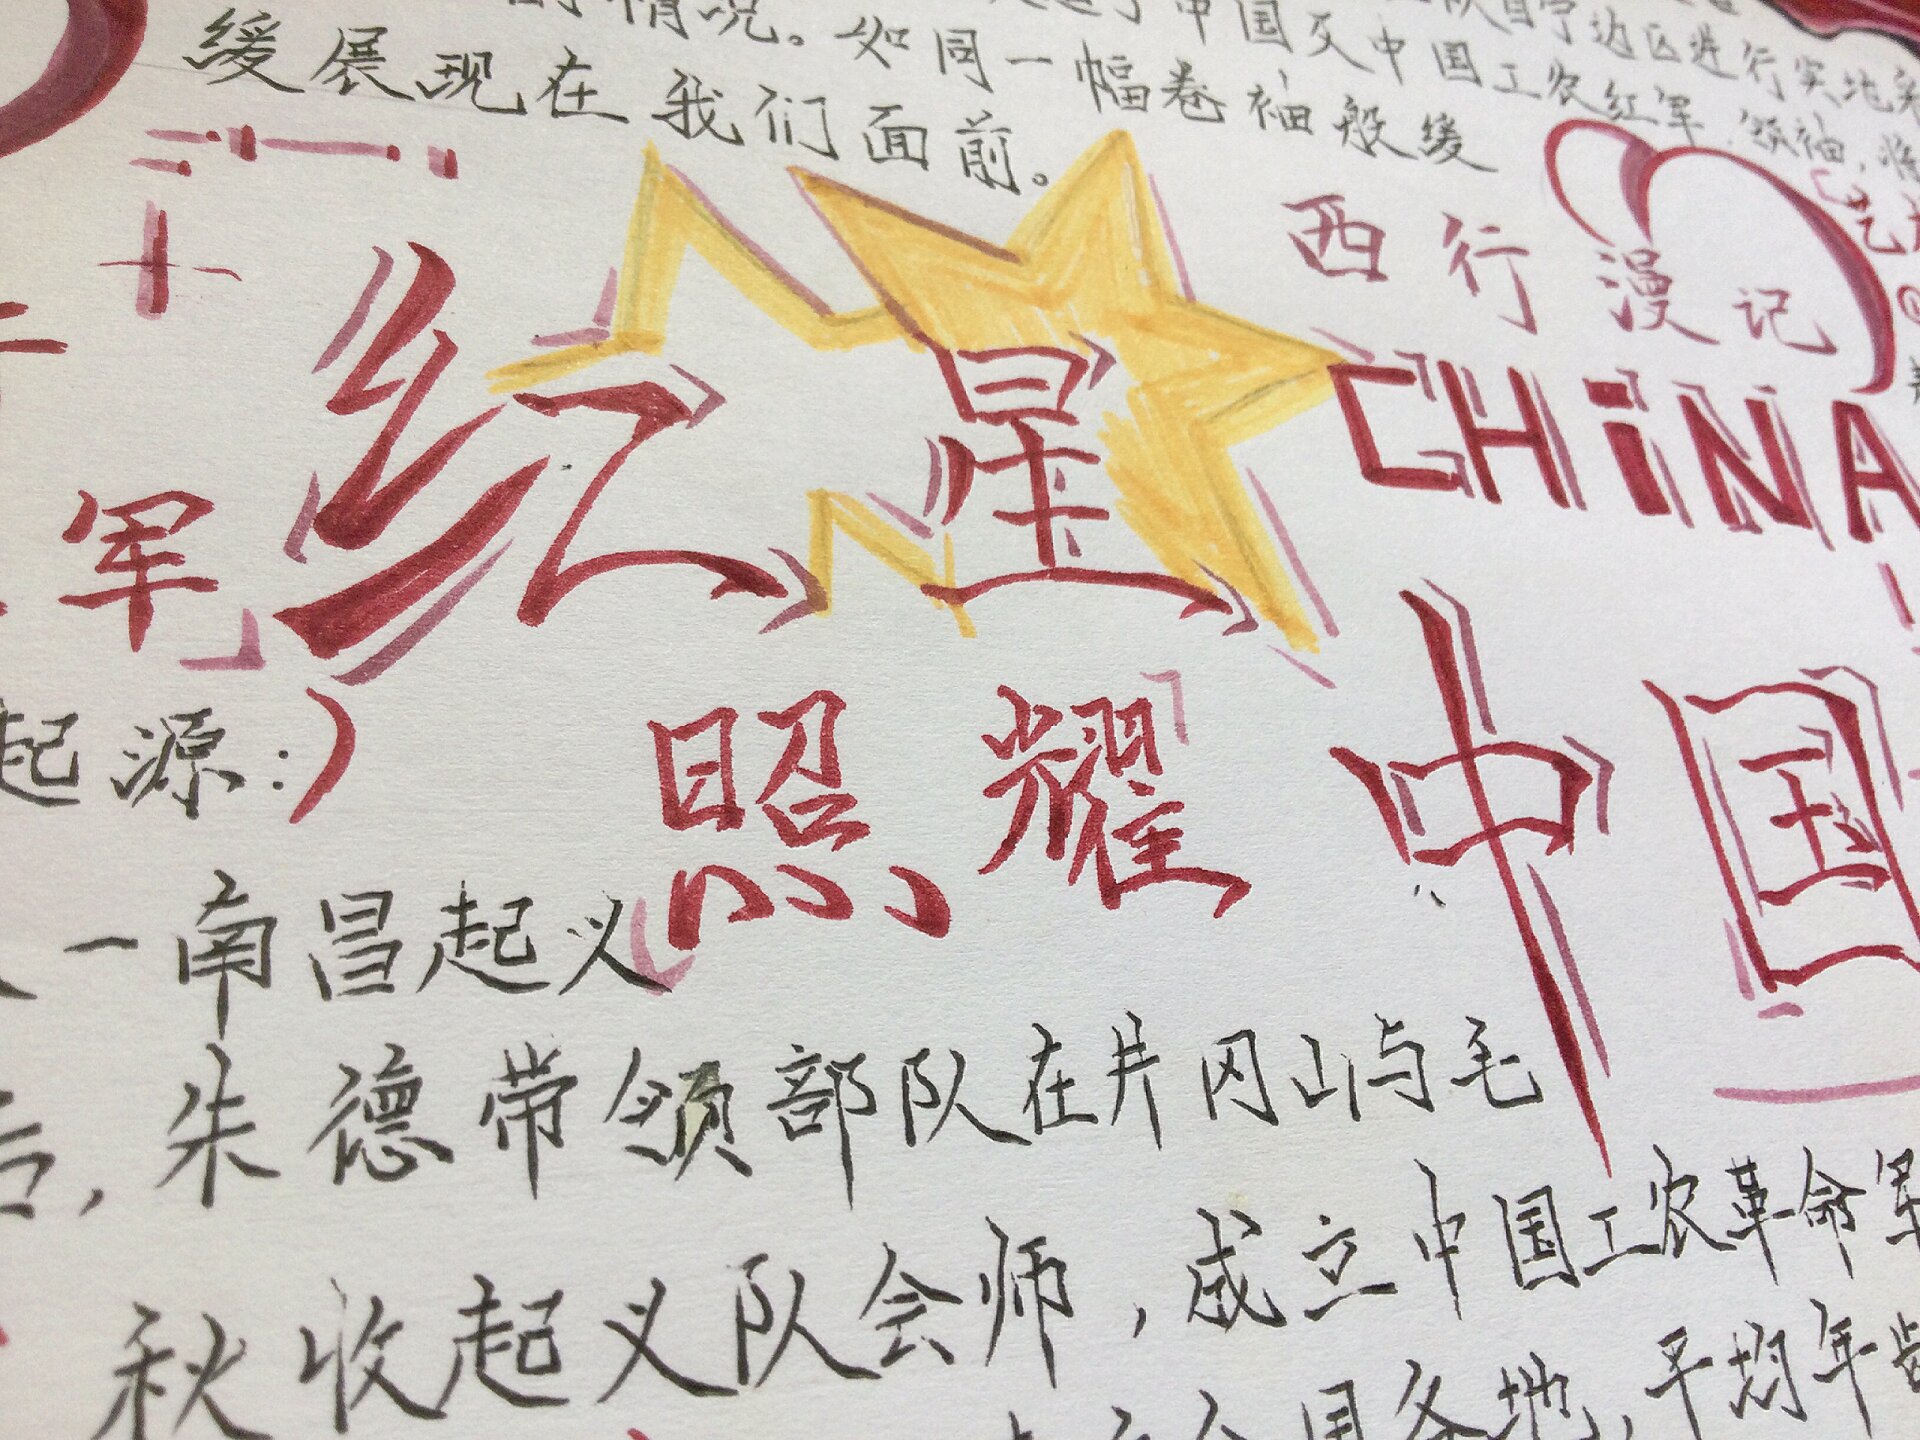 情况。如同一幅卷袖般缓
缓展现在我们面前。
中国工农红军
西行漫记
CHiNA
红星
照耀中国
军
起源:
一南昌起义
后,朱德带领部队在井冈山与毛
秋收起义队会师,成立中国工农革命军
国各地,平均年龄